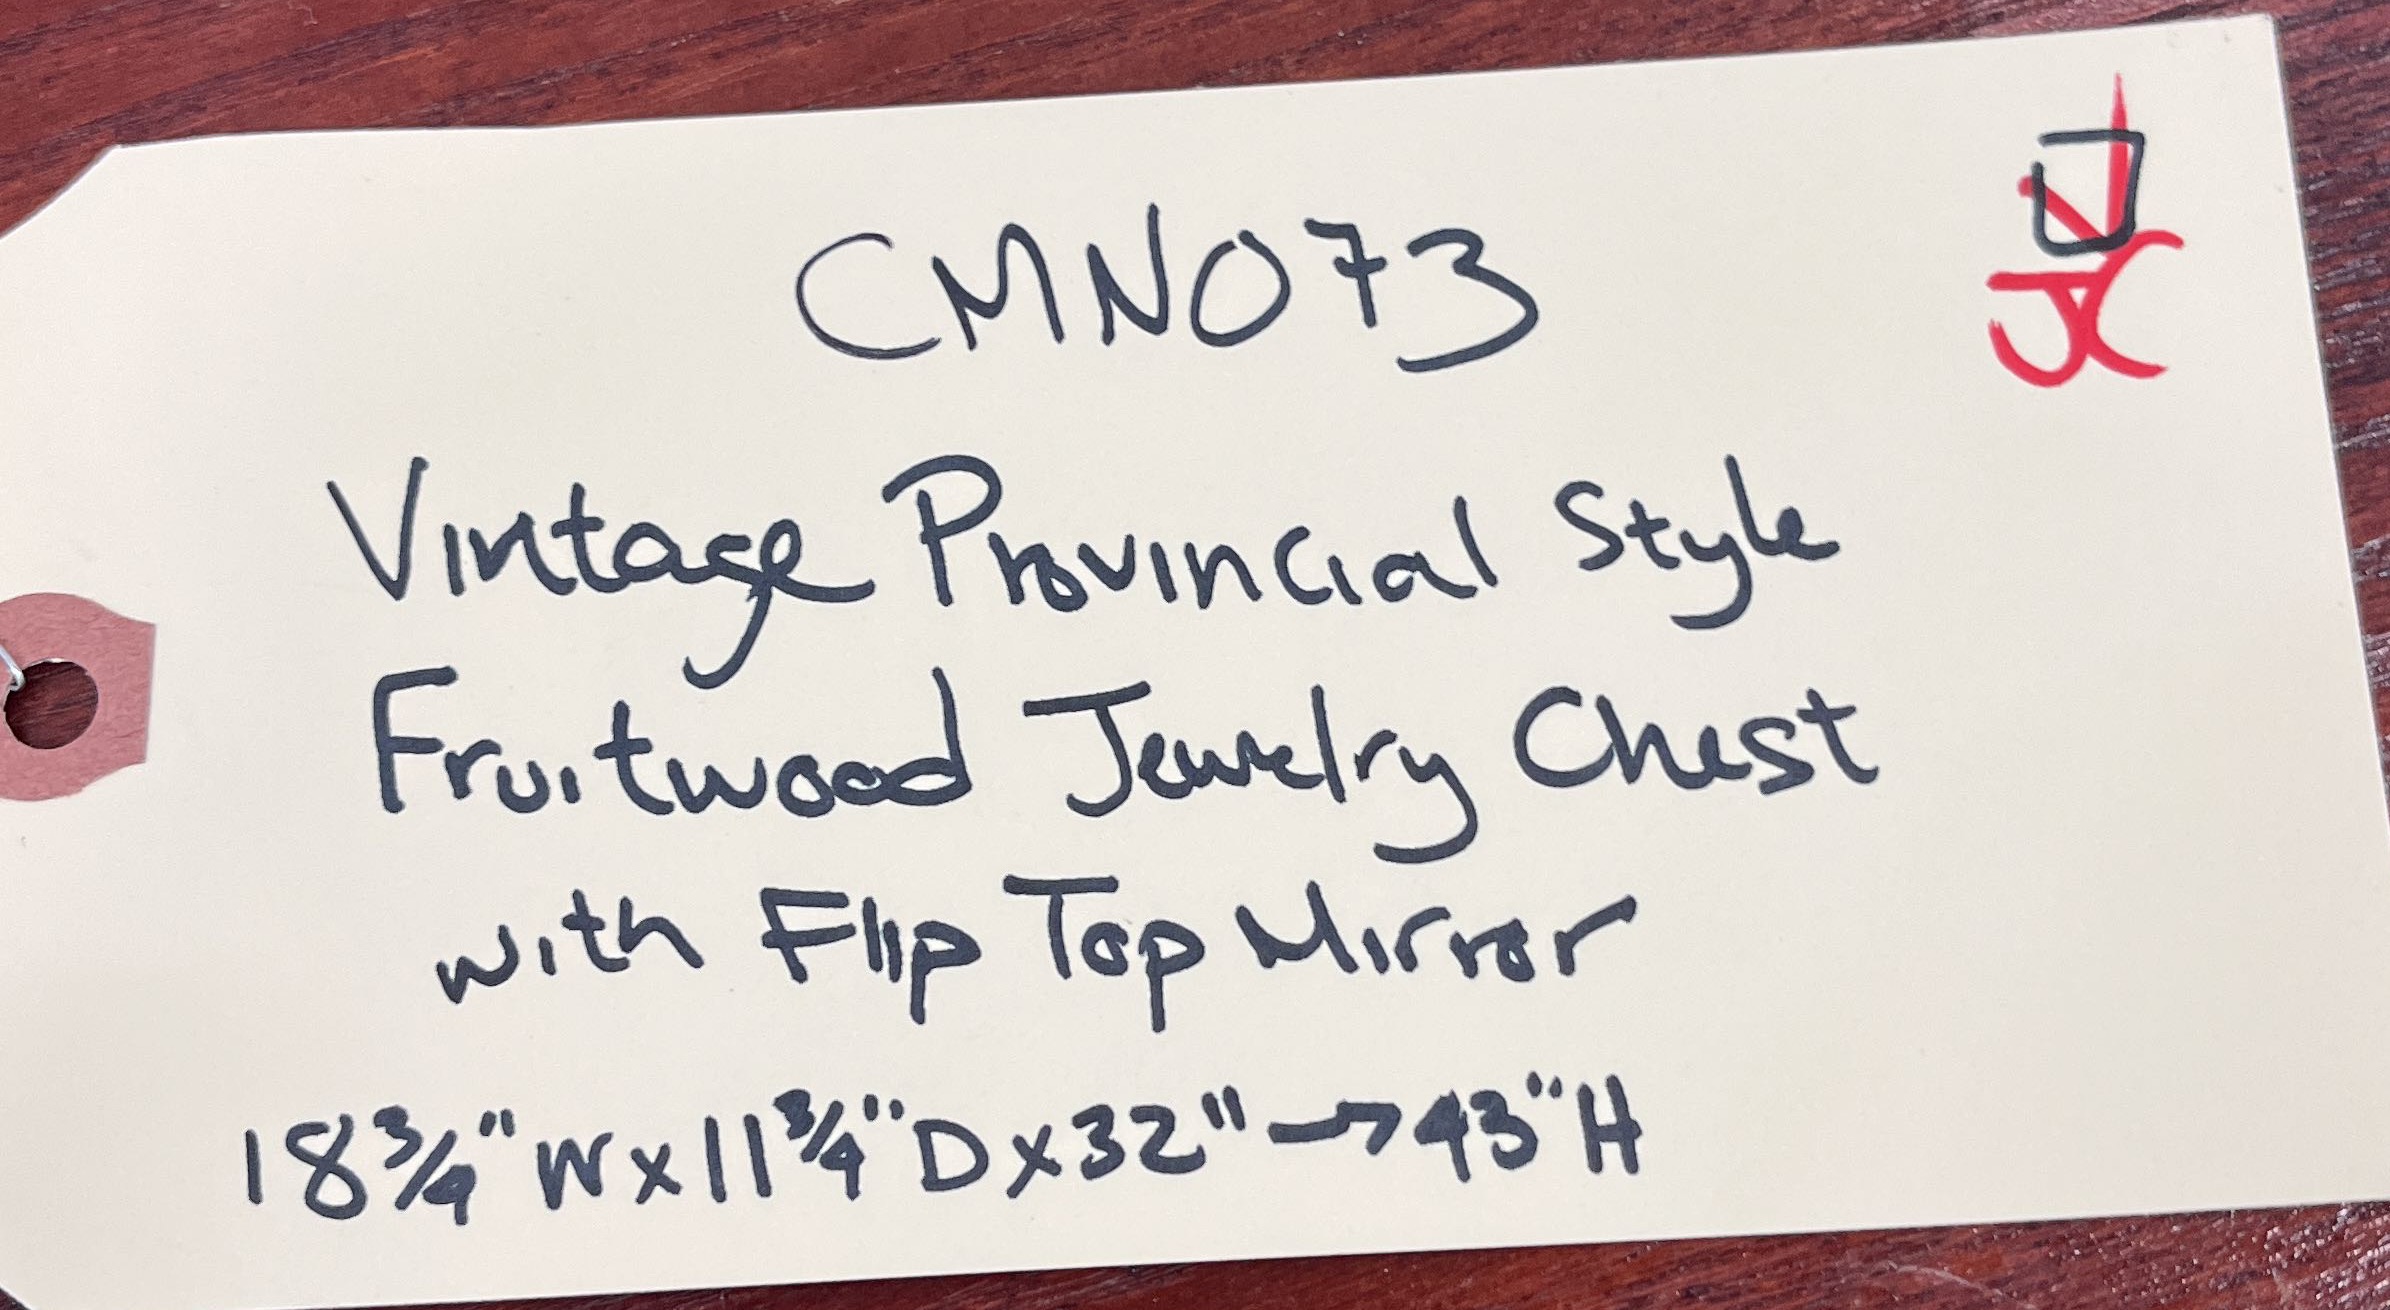 CMN073
JC
Vintage Provincial Style
Fruitwood Jewelry Chest
with Flip Top Mirror
18 3/4" W x 11 3/4" D x 32" → 43" H